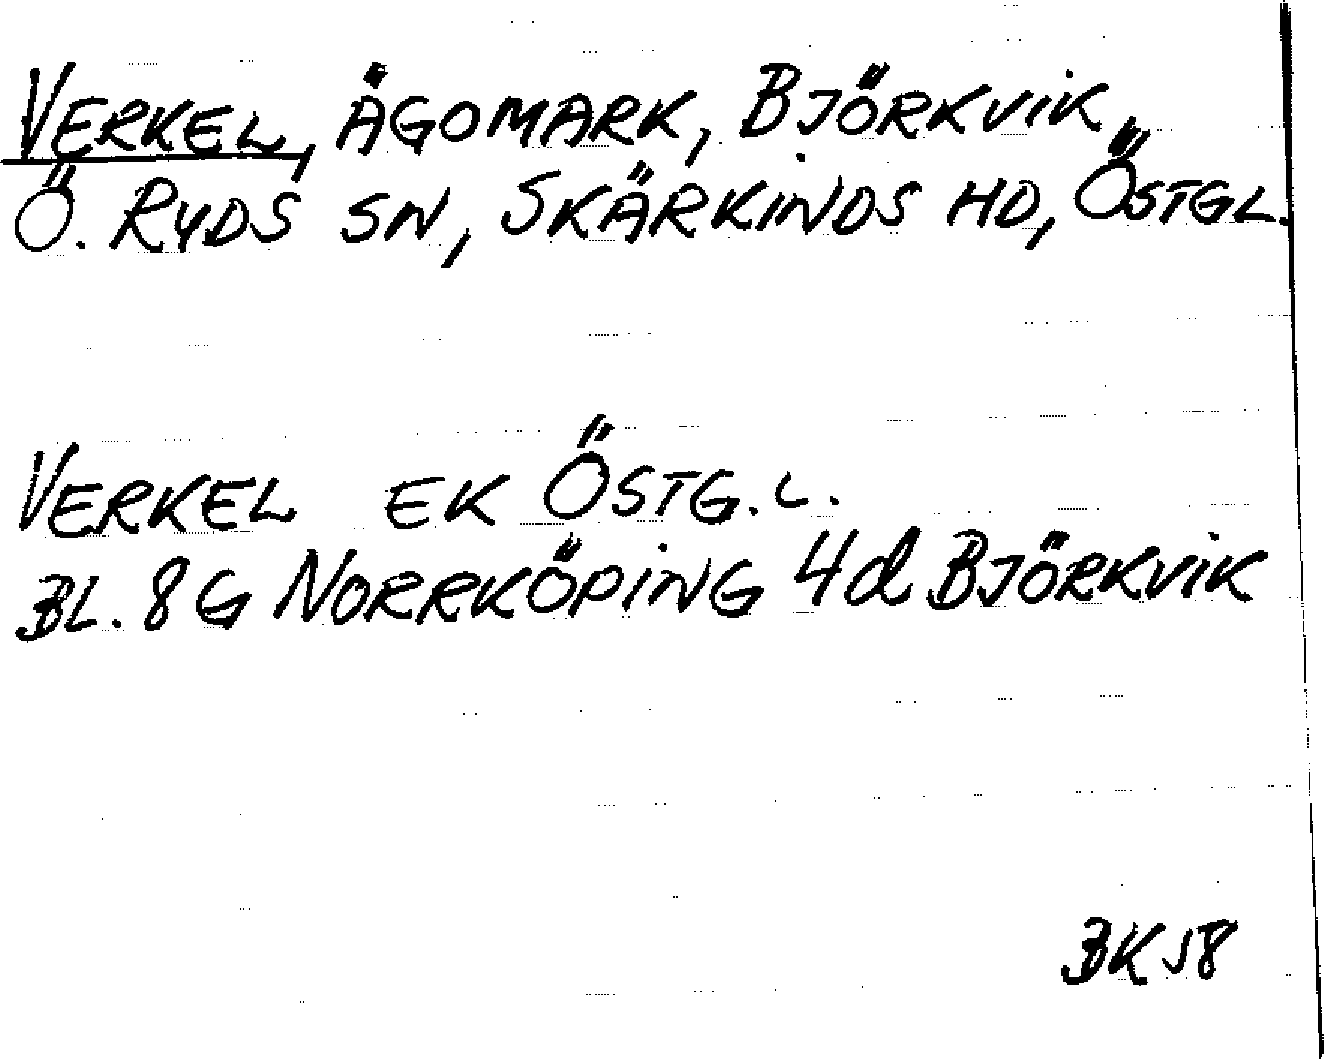 VERKEL, ÄGOMARK, BJÖRKVIK,
Ö. RYDS SN, SKÄRKINDS HD, ÖSTGL.
VERKEL EK ÖSTG.L.
BL. 8G NORRKÖPING 4d BJÖRKVIK
BK58